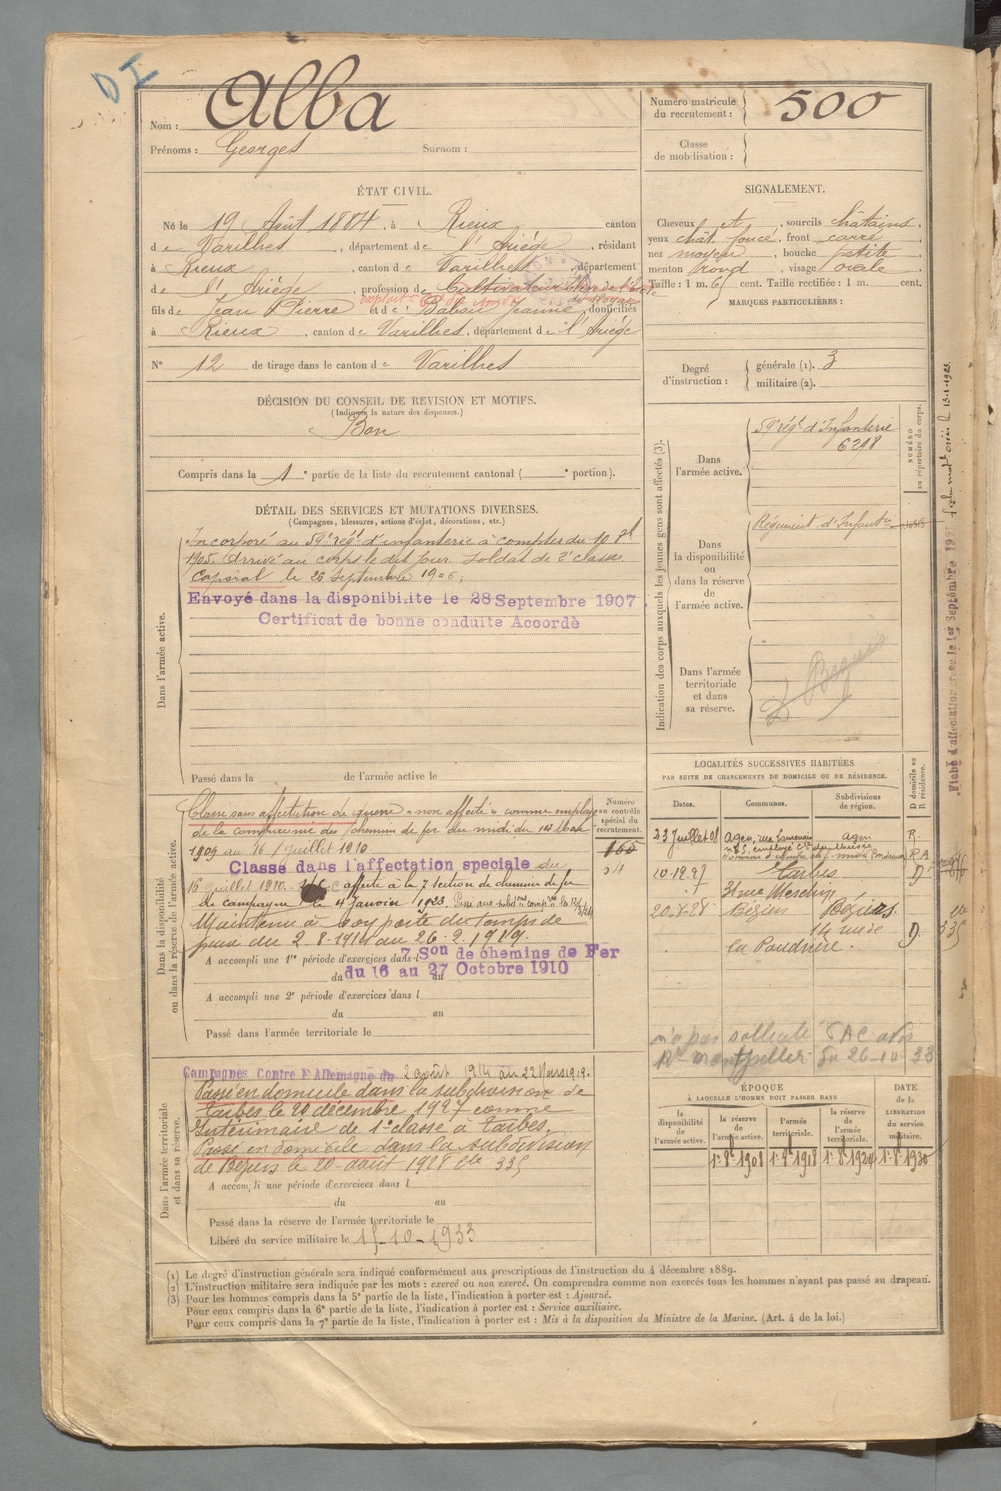 DI
Nom : Alba
Prénoms : Georges Surnom :
Numéro matricule du recrutement : 500
Classe de mobilisation :
ÉTAT CIVIL.
Né le 19 Août 1884, à Rieux canton
de Varilhes, département de l'Ariège, résidant
à Rieux, canton de Varilhes, département
de l'Ariège, profession de Cultivateur
fils de Jean Pierre et de Jeanne, domiciliés
à Rieux, canton de Varilhes, département de l'Ariège
N° 12 de tirage dans le canton de Varilhes
SIGNALEMENT.
Cheveux et, sourcils châtains
yeux chât. foncé, front carré
nez moyen, bouche petite
menton rond, visage ovale
Taille : 1 m. 6 cent. Taille rectifiée : 1 m. cent.
MARQUES PARTICULIÈRES :
Degré d'instruction : générale (1). 3
militaire (2).
DÉCISION DU CONSEIL DE REVISION ET MOTIFS.
(Indiquer la nature des dispenses.)
Bon
Compris dans la 1e partie de la liste du recrutement cantonal ( e portion).
DÉTAIL DES SERVICES ET MUTATIONS DIVERSES.
(Campagnes, blessures, actions d'éclat, décorations, etc.)
Dans l'armée active.
Incorporé au 59e régt d'infanterie à compter du 10 8bre
1905. Arrivé au corps le dit jour. Soldat de 2e classe.
Caporal le 26 Septembre 1906;
Envoyé dans la disponibilite le 28 Septembre 1907
Certificat de bonne conduite Accordè
Passé dans la de l'armée active le
Indication des corps auxquels les jeunes gens sont affectés (3).
Dans l'armée active.
59e régt d'Infanterie
6298
NUMÉRO au répertoire du corps.
Dans la disponibilité ou dans la réserve de l'armée active.
Régiment d'Infanterie
Dans l'armée territoriale et dans sa réserve.
Fiche d'affectation
1er Septembre
Dans la disponibilité ou dans la réserve de l'armée active.
Classe sans affectation de guerre "non affecté" comme employé
de la compagnie des chemin de fer du midi du 14
1909 au 16 juillet 1910
Classé dans l'affectation speciale du
16 juillet 1910. affecté à la 7 section de chemins de fer
de campagne le 4 Janvier 1923.
Maintenu à son poste du temps de
paix du 2-8-1914 au 26-2-1919.
A accompli une 1re période d'exercices dans l 7 Son de chemins de Fer
du 16 au 27 Octobre 1910
A accompli une 2e période d'exercices dans l
du au
Passé dans l'armée territoriale le
Numéro au contrôle spécial du recrutement.
LOCALITÉS SUCCESSIVES HABITÉES
PAR SUITE DE CHANGEMENTS DE DOMICILE OU DE RÉSIDENCE.
Dates. Communes. Subdivisions de région. D domicile ou R résidence.
23 Juillet 08 Agen, rue Agen R.
10.12.27 Tarbes D
20-8-28 Béziers Béziers
14 rue de D.
la Poudrière.
n'a pas sollicité
Montpellier du 26-10-33
Dans l'armée territoriale et dans sa réserve.
Campagnes Contre l'Allemagne du 2 août 1914 au 22 Mars 1919.
Passé en domicile dans la subdivision de
Tarbes le 20 décembre 1927 comme
Intérimaire de 1e classe à Tarbes.
Passé en domicile dans la subdivision
de Béziers le 20 août 1928 335
A accompli une période d'exercices dans l
du au
Passé dans la réserve de l'armée territoriale le
Libéré du service militaire le 15-10-1933
ÉPOQUE
À LAQUELLE L'HOMME DOIT PASSER DANS
la disponibilité de l'armée active. la réserve de l'armée active. l'armée territoriale. la réserve de l'armée territoriale. DATE de la LIBÉRATION du service militaire.
1er 8bre 1908 1er 8bre 1918 1er 8bre 1924 1er 8bre 1930
(1) Le degré d'instruction générale sera indiqué conformément aux prescriptions de l'instruction du 4 décembre 1889.
(2) L'instruction militaire sera indiquée par les mots : exercé ou non exercé. On comprendra comme non exercés tous les hommes n'ayant pas passé au drapeau.
(3) Pour les hommes compris dans la 5e partie de la liste, l'indication à porter est : Ajourné.
Pour ceux compris dans la 6e partie de la liste, l'indication à porter est : Service auxiliaire.
Pour ceux compris dans la 7e partie de la liste, l'indication à porter est : Mis à la disposition du Ministre de la Marine. (Art. 4 de la loi.)